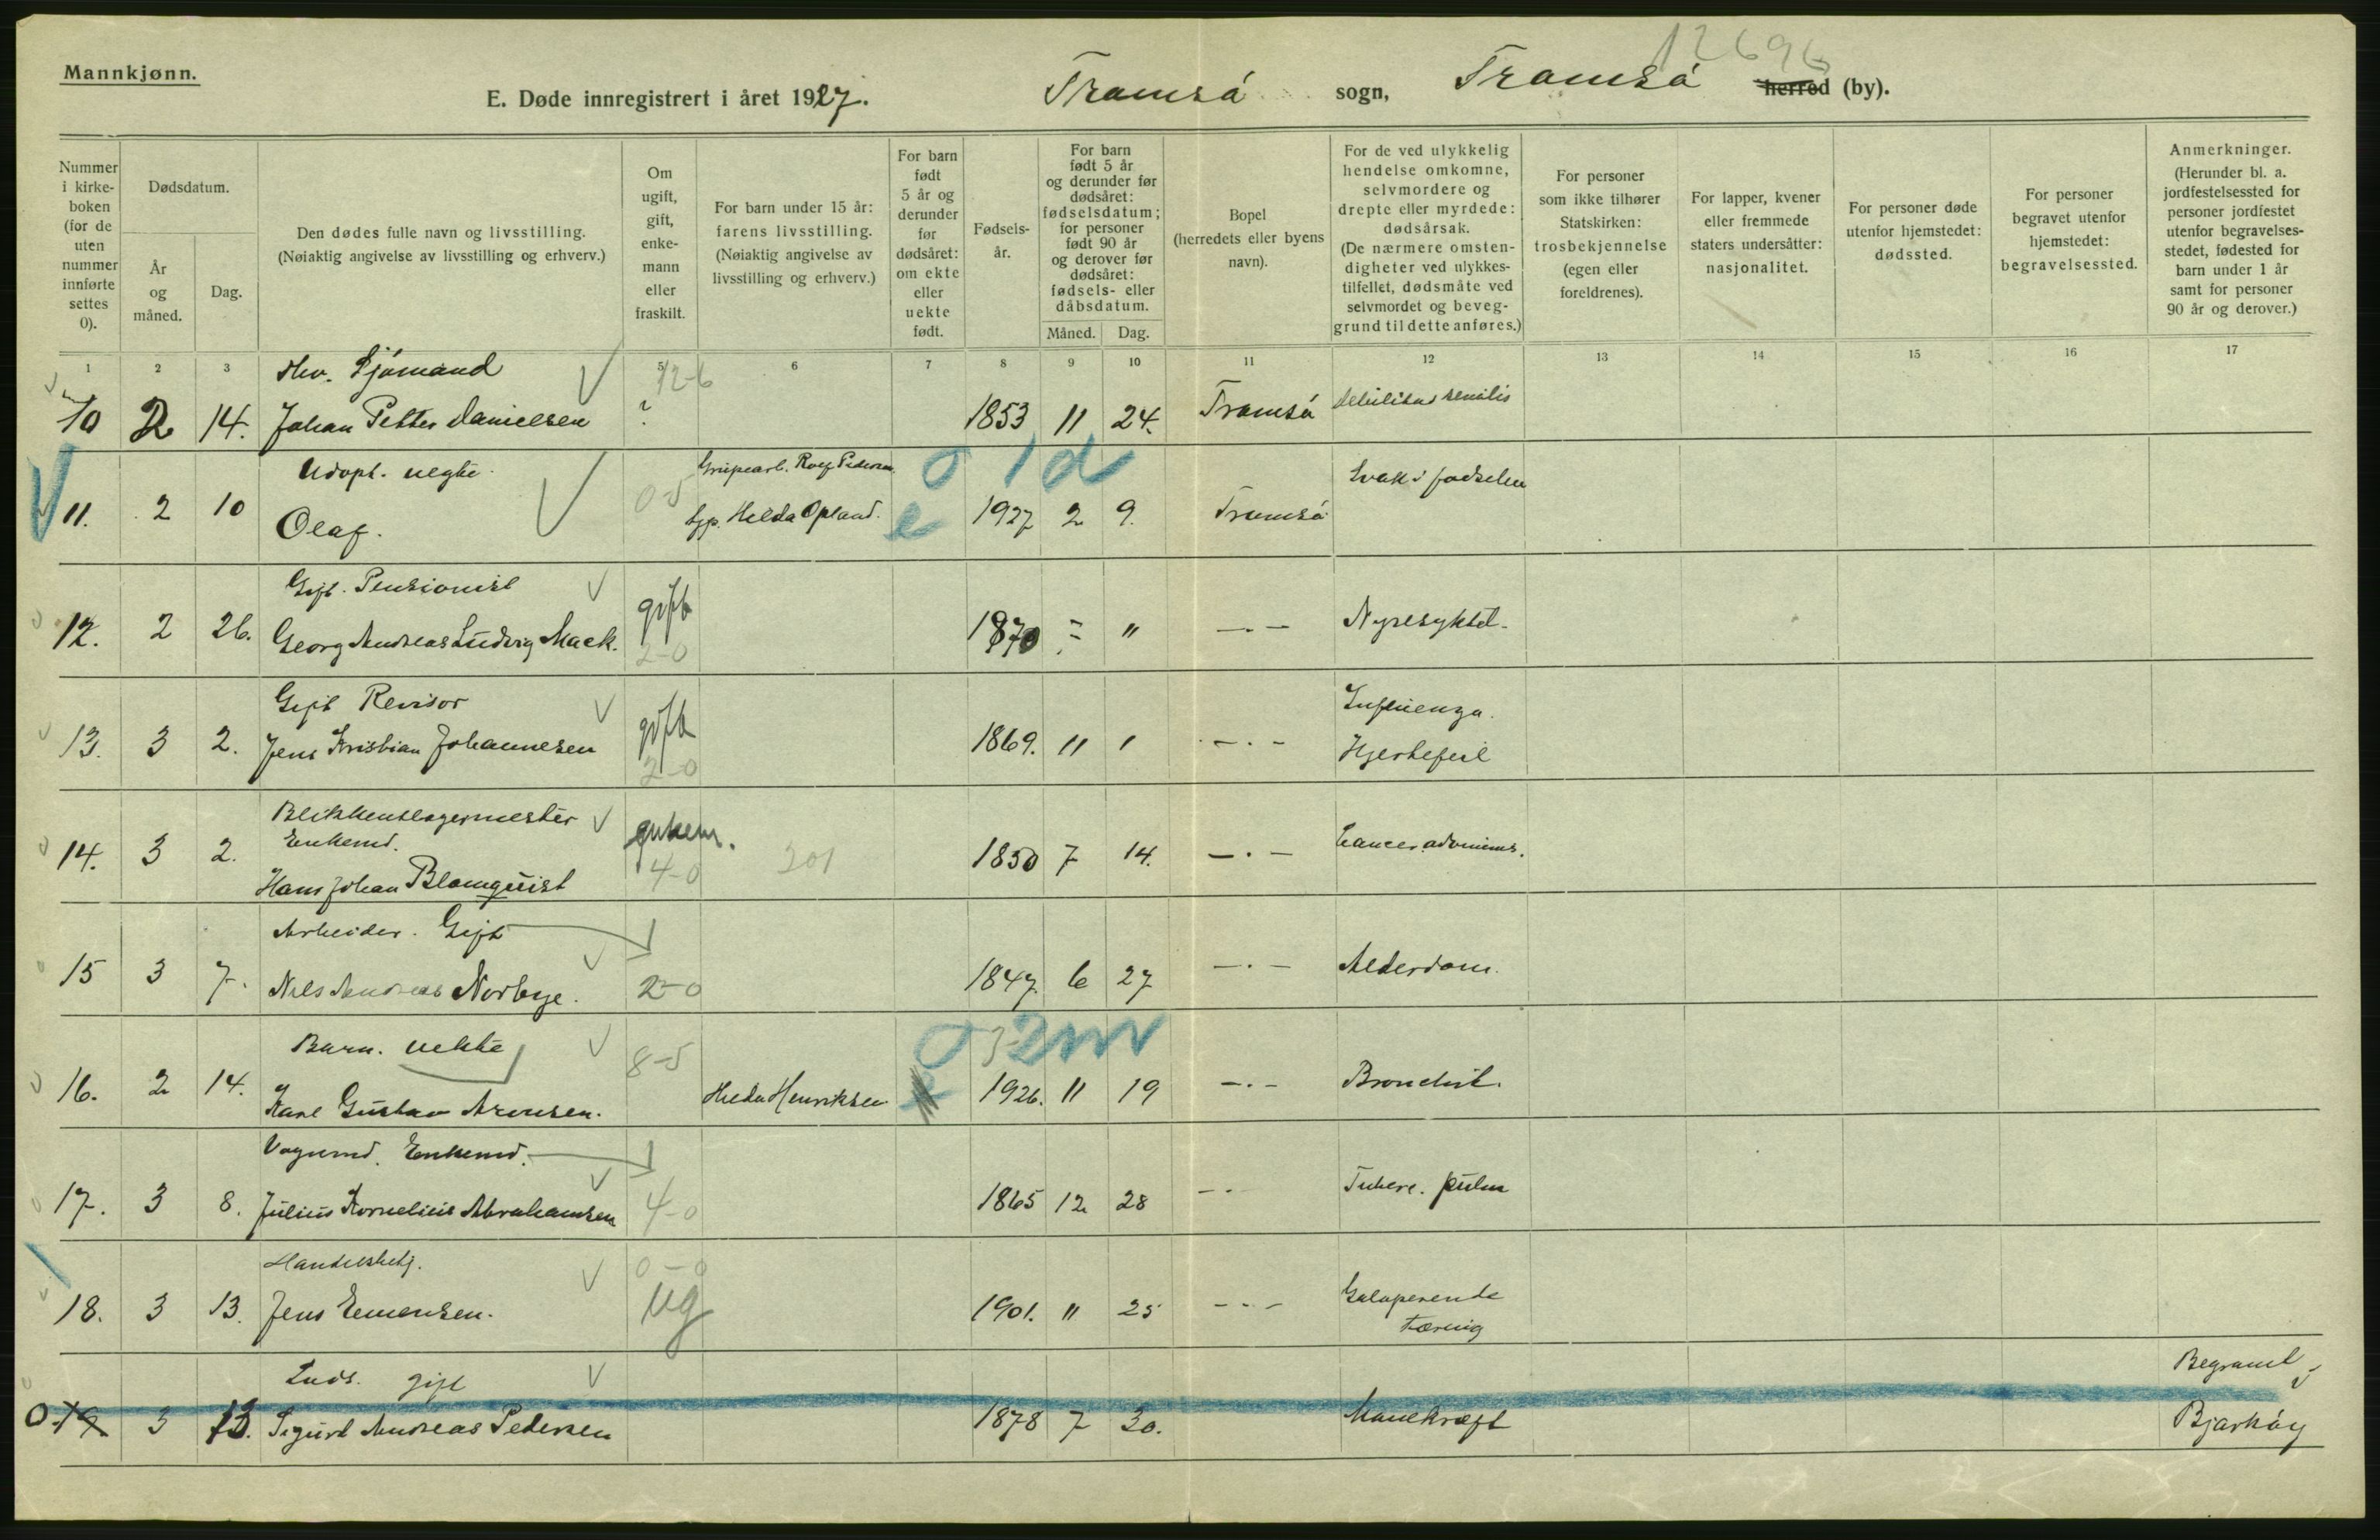 12696
Mannkjønn.
E. Døde innregistrert i året 1927. Tromsö sogn, Tromsö herred (by).
Nummer i kirke-boken (for de uten nummer innførte settes 0).
Dødsdatum.
År og måned.
Dag.
Den dødes fulle navn og livsstilling.
(Nøiaktig angivelse av livsstilling og erhverv.)
Om ugift, gift, enke-mann eller fraskilt.
For barn under 15 år: farens livsstilling. (Nøiaktig angivelse av livsstilling og erhverv.)
For barn født 5 år og derunder før dødsåret: om ekte eller uekte født.
Fødsels-år.
For barn født 5 år og derunder før dødsåret: fødselsdatum; for personer født 90 år og derover før dødsåret: fødsels- eller dåbsdatum.
Måned. Dag.
Bopel (herredets eller byens navn).
For de ved ulykkelig hendelse omkomne, selvmordere og drepte eller myrdede: dødsårsak. (De nærmere omsten-digheter ved ulykkes-tilfellet, dødsmåte ved selvmordet og beveg-grund til dette anføres.)
For personer som ikke tilhører Statskirken: trosbekjennelse (egen eller foreldrenes).
For lapper, kvener eller fremmede staters undersåtter: nasjonalitet.
For personer døde utenfor hjemstedet: dødssted.
For personer begravet utenfor hjemstedet: begravelsessted.
Anmerkninger. (Herunder bl. a. jordfestelsessted for personer jordfestet utenfor begravelses-stedet, fødested for barn under 1 år samt for personer 90 år og derover.)
1 2 3 5 6 7 8 9 10 11 12 13 14 15 16 17
Sjömand 12-6
10 2 14. Johan Petter Danielsen ? 1853 11 24. Tromsö debilitas senilis
Udöpt. uegte. 0-5 Rolf Pedersen 1d Svak i fødselen
11. 2 10 Olaf. Helda Opland. e 1927 2 9. Tromsö
Gift. Pensionist gift
12. 2 26. Georg Andreas Ludvig Mack. 2-0 1870 " " —.— Nyresykdd.
Gift Revisor gift Influenza.
13. 3 2. Jens Kristian Johannesen 2-0 1869. 11 1 —.— Hjertefeil
Blikkenslagermester
Enkemd. enkem.
14. 3 2. Hans Johan Blomquist 4-0 201 1850 7 14. —.— Cancer
Arbeider. Gift
15 3 7. Nils Andreas Norbye. 2-0 1847. 6 27 —.— Alderdom.
Barn. uekte 8-5 3 2m
16. 2 14. Karl Gustav Aronsen. Helda Henriksen 1926. 11 19 —.— Bronchit.
Vognmd. Enkemd.
17. 3 8. Julius Kornelius Abrahamsen 4-0 1865 12 28 —.— Tuberc. pulm
Handelsbetj. 0-0
18. 3 13. Jens Eemensen. ug 1901. 11 25 —.— Galoperende
tæring
Inds. gift Begravet
0 19. 3 13. Sigurd Andreas Pedersen 1878 7 30. Mavekræft Bjarköy